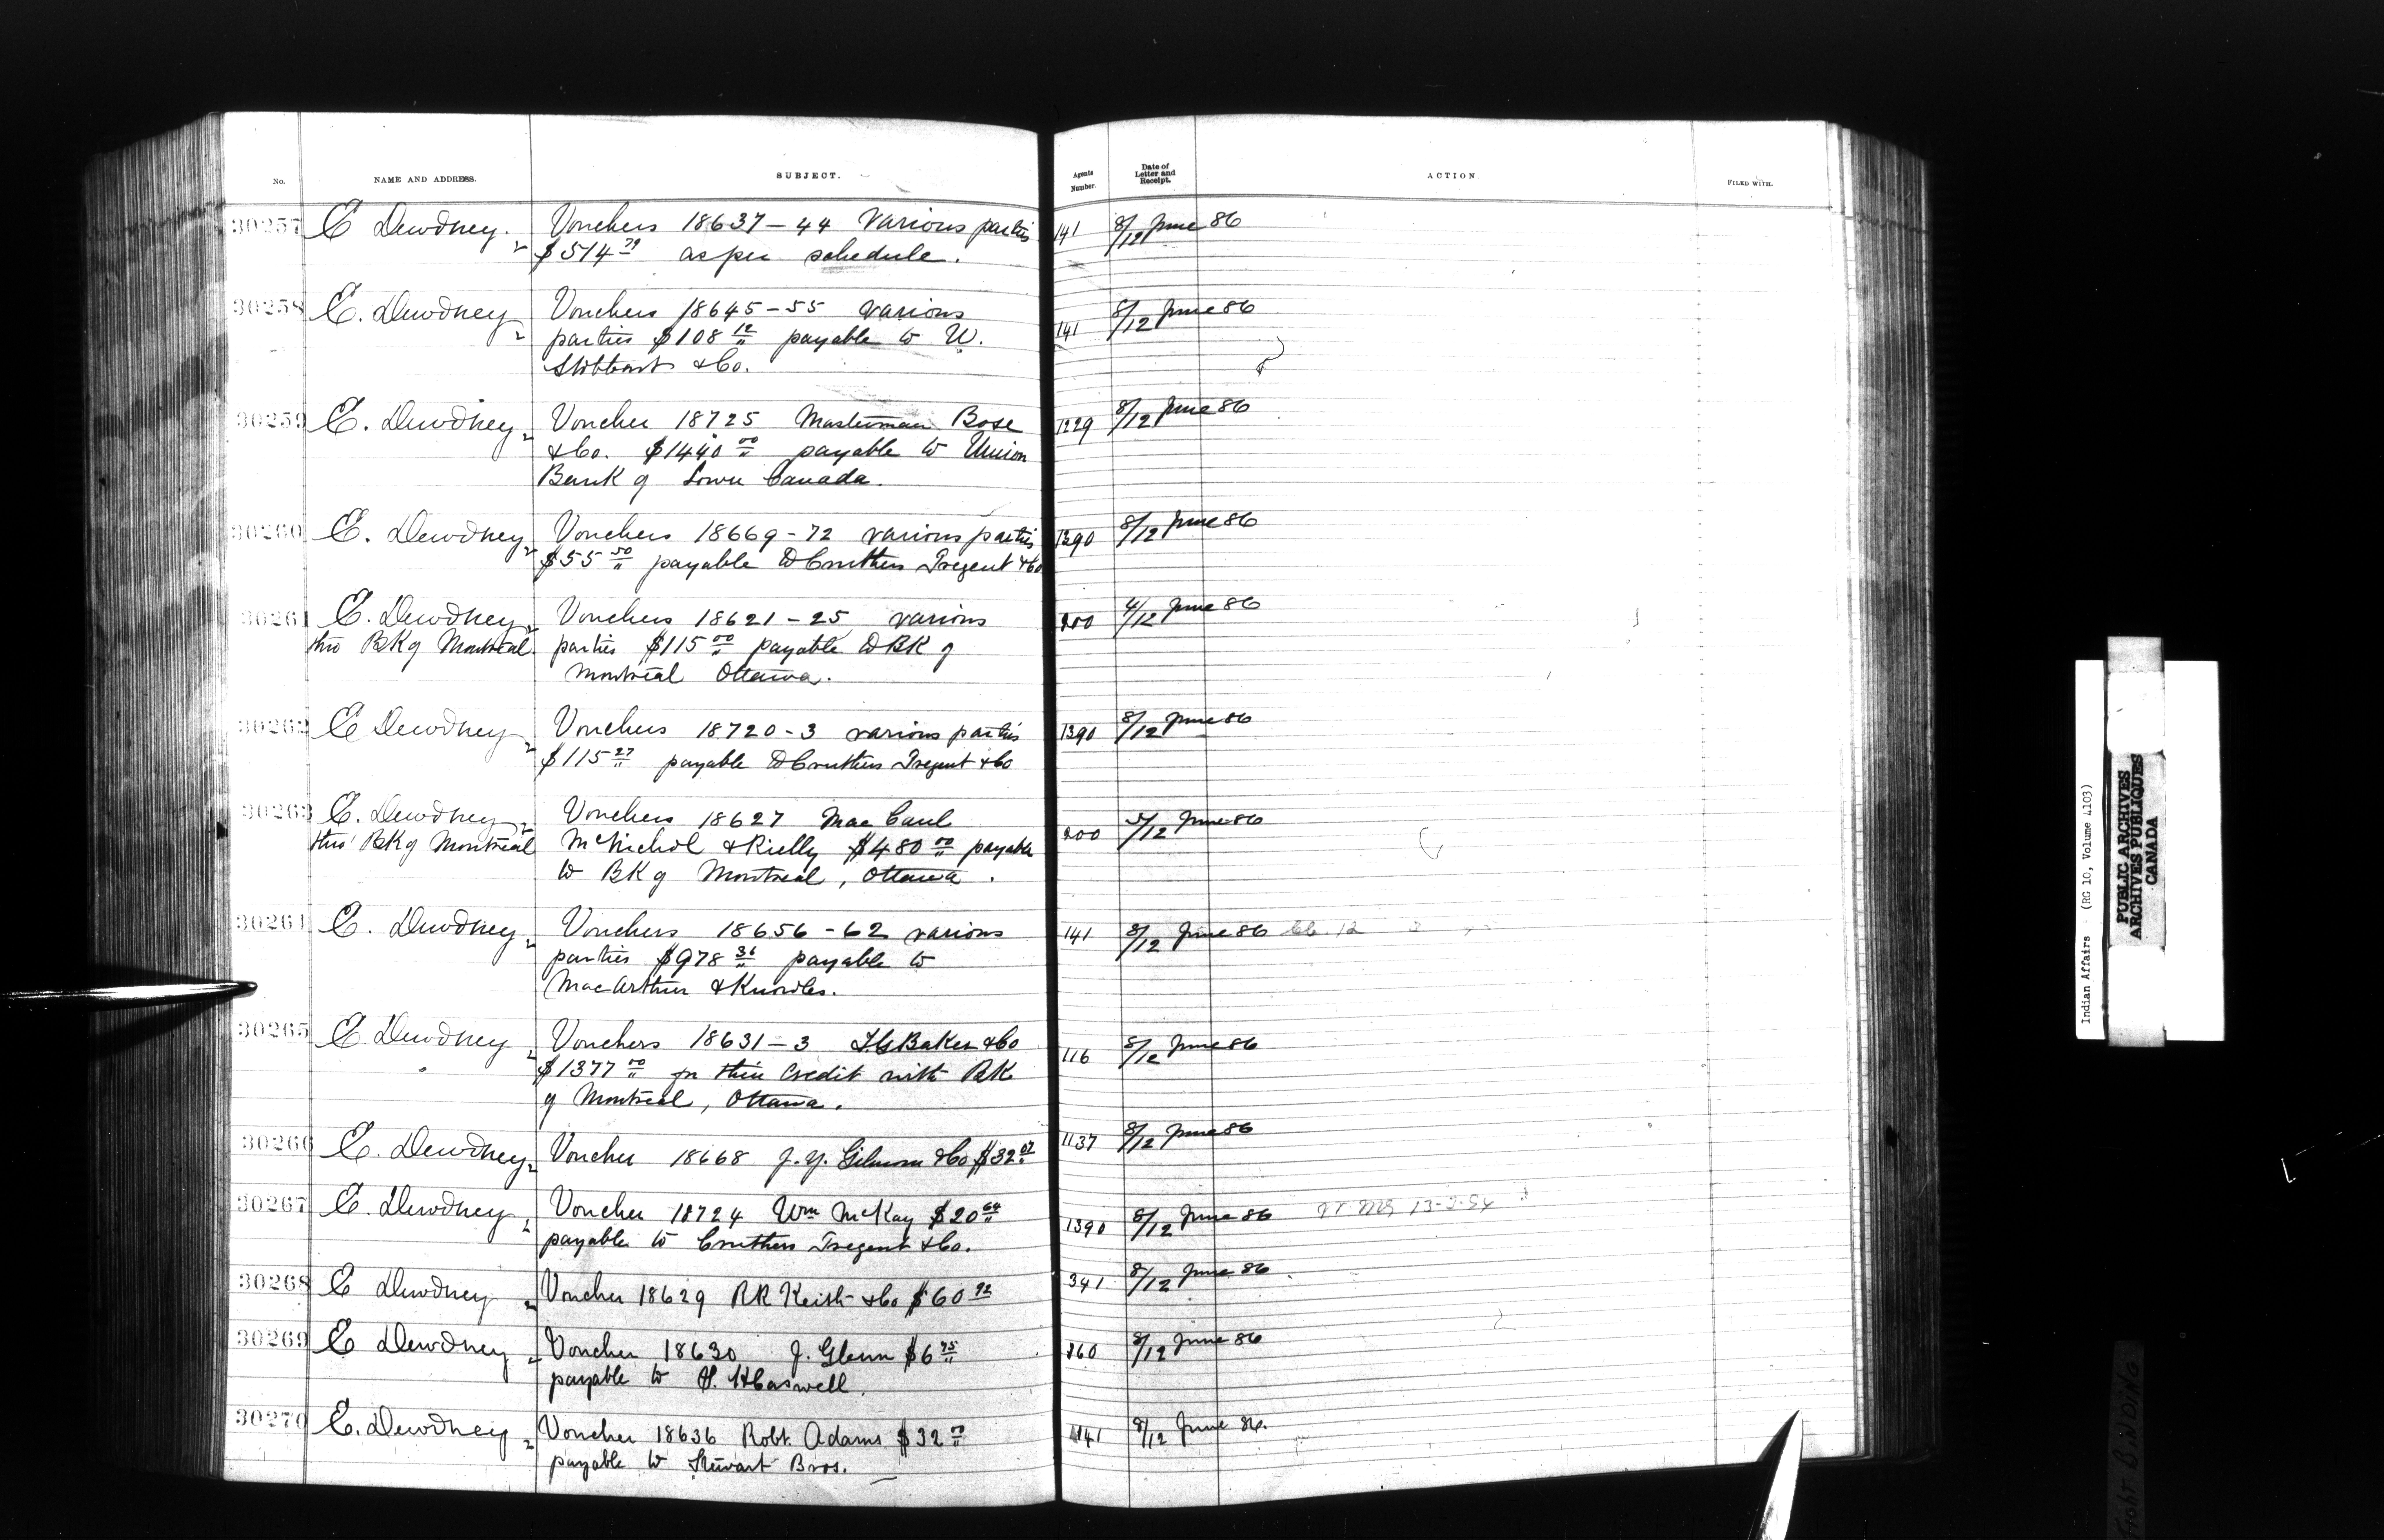 No. NAME AND ADDRESS. SUBJECT. Agents Number. Date of Letter and Receipt. ACTION. FILED WITH.
30257 E Dewdney. Vouchers 18637-44 Various parties 141 8/12 June 86
$514 79 as per schedule.
30258 E. Dewdney Vouchers 18645-55 various 141 8/12 June 86
parties $108 12 payable to W.
Stobbart & Co.
30259 E. Dewdney Voucher 18725 Masterman Bose 1229 8/12 June 86
& Co. $1440 00 payable to Union
Bank of Lower Canada.
30260 E. Dewdney Vouchers 18669-72 various parties 1390 8/12 June 86
$55 50 payable to Cruthers Tregent & Co
30261 E. Dewdney Vouchers 18621-25 various 200 4/12 June 86
thro BK of Montreal. parties $115 00 payable to BK of
Montreal Ottawa.
30262 E Dewdney Vouchers 18720-3 various parties 1390 8/12 June 86
$115 27 payable to Cruthers Tregent & Co
30263 E. Dewdney Vouchers 18627 Mac Caul 200 5/12 June 86
thro' BK of Montreal McNichol & Rielly $480 00 payable
to BK of Montreal, Ottawa.
30264 E. Dewdney Vouchers 18656-62 various 141 8/12 June 86
parties $978 36 payable to
MacArthur & Knowles.
30265 E Dewdney Vouchers 18631-3 I.G Baker & Co 116 8/12 June 86
$1377 00 for their credit with BK
of Montreal, Ottawa.
30266 E. Dewdney Voucher 18668 J.Y. Gilmour & Co $32 07 1137 8/12 June 86
30267 E. Dewdney Voucher 18724 Wm McKay $20 64 1390 8/12 June 86
payable to Cruthers Tregent & Co.
30268 E Dewdney Voucher 18629 RR Keith & Co $60 92 341 8/12 June 86
30269 E Dewdney Voucher 18630 J. Glenn $6 75 860 8/12 June 86
payable to H. H Caswell.
30270 E. Dewdney Voucher 18636 Robt. Adams $32 00 1141 8/12 June 86.
payable to Stewart Bros.
Indian Affairs (RG 10, Volume 4103)
PUBLIC ARCHIVES
ARCHIVES PUBLIQUES
CANADA
TIGHT BINDING